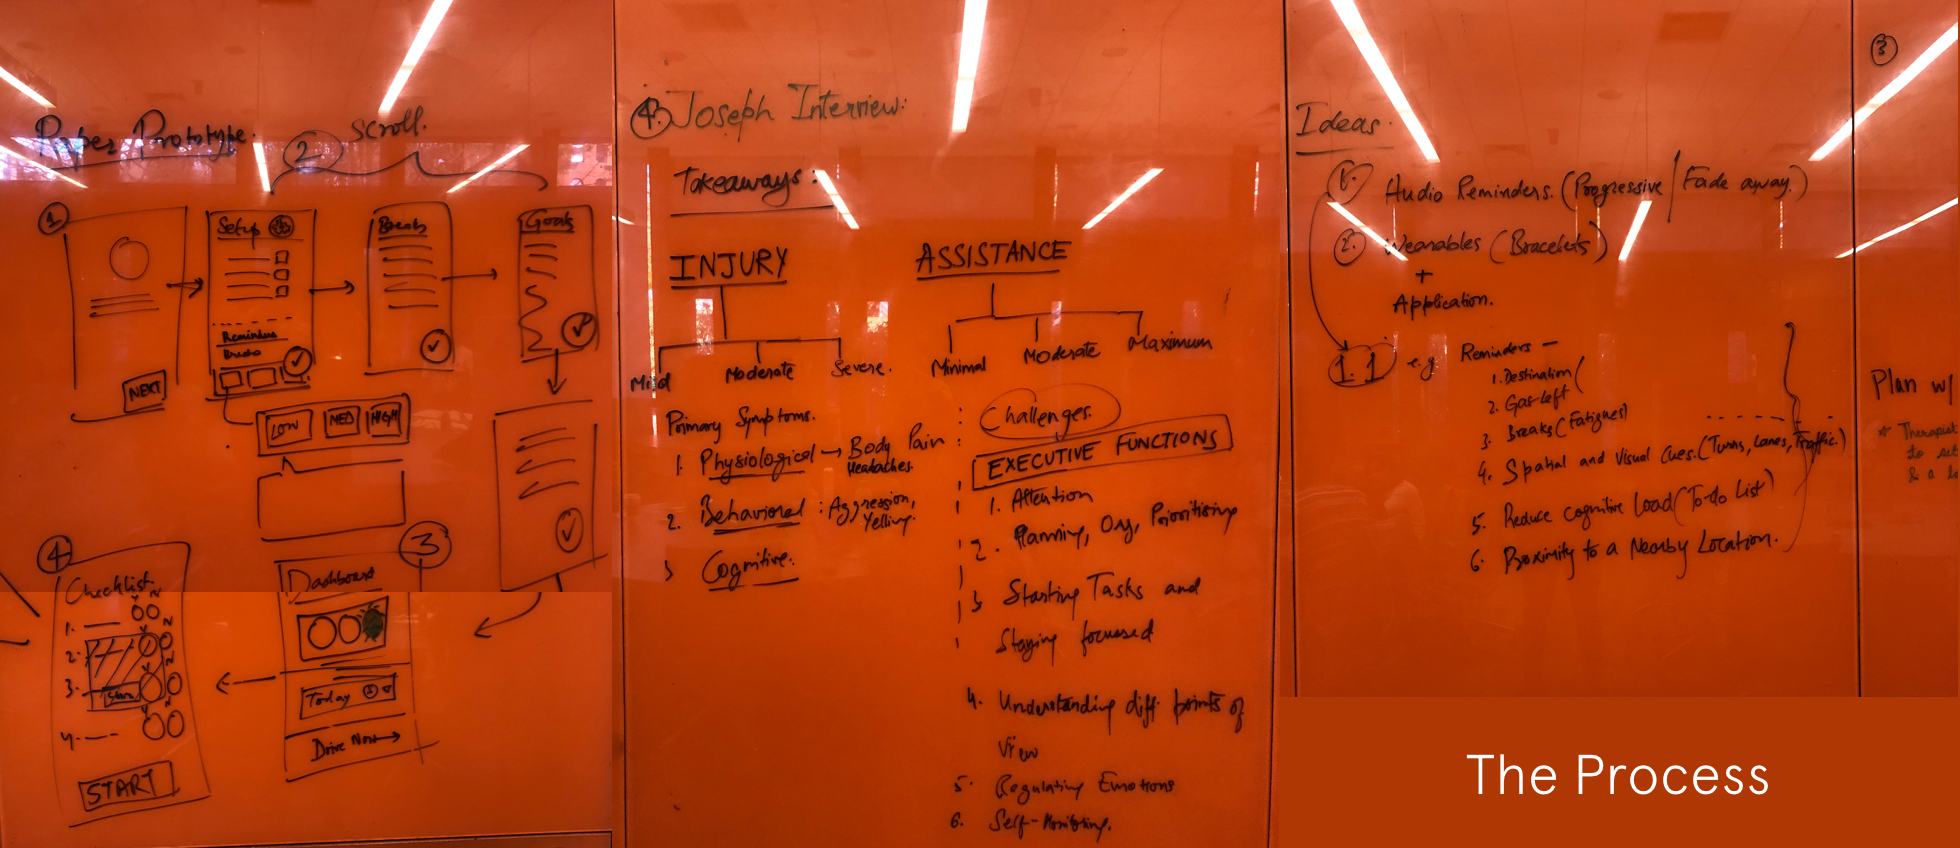 Paper Prototype.
2 Scroll.
1
NEXT
Setup
Reminders
Audio
Breaks
Goals
LOW MED HIGH
3
Dashboard
Today
Drive Now
4
Checklist.
Y N
1.
2.
Y N
3.
Y N
4.
Y N
START
4. Joseph Interview:
Takeaways:
INJURY
Mild Moderate Severe.
Primary Symptoms.
1. Physiological → Body Pain
Headaches
2. Behavioral : Aggression,
Yelling.
3 Cognitive.
ASSISTANCE
Minimal Moderate Maximum
Challenges.
EXECUTIVE FUNCTIONS
1. Attention
2. Planning, Org, Prioritising
3 Starting Tasks and
Staying focussed
4. Understanding diff. points of
View
5. Regulating Emotions
6. Self-Monitoring.
Ideas.
1. Audio Reminders. (Progressive / Fade away.)
2. Wearables (Bracelets)
+
Application.
1.1 e.g Reminders —
1. Destination (
2. Gas left
3. Breaks (Fatigues)
4. Spatial and Visual Cues. (Turns, Lanes, Traffic.)
5. Reduce Cognitive Load (To-do List)
6. Proximity to a Nearby Location.
3
Plan w/
* Therapist
to set
& a
The Process